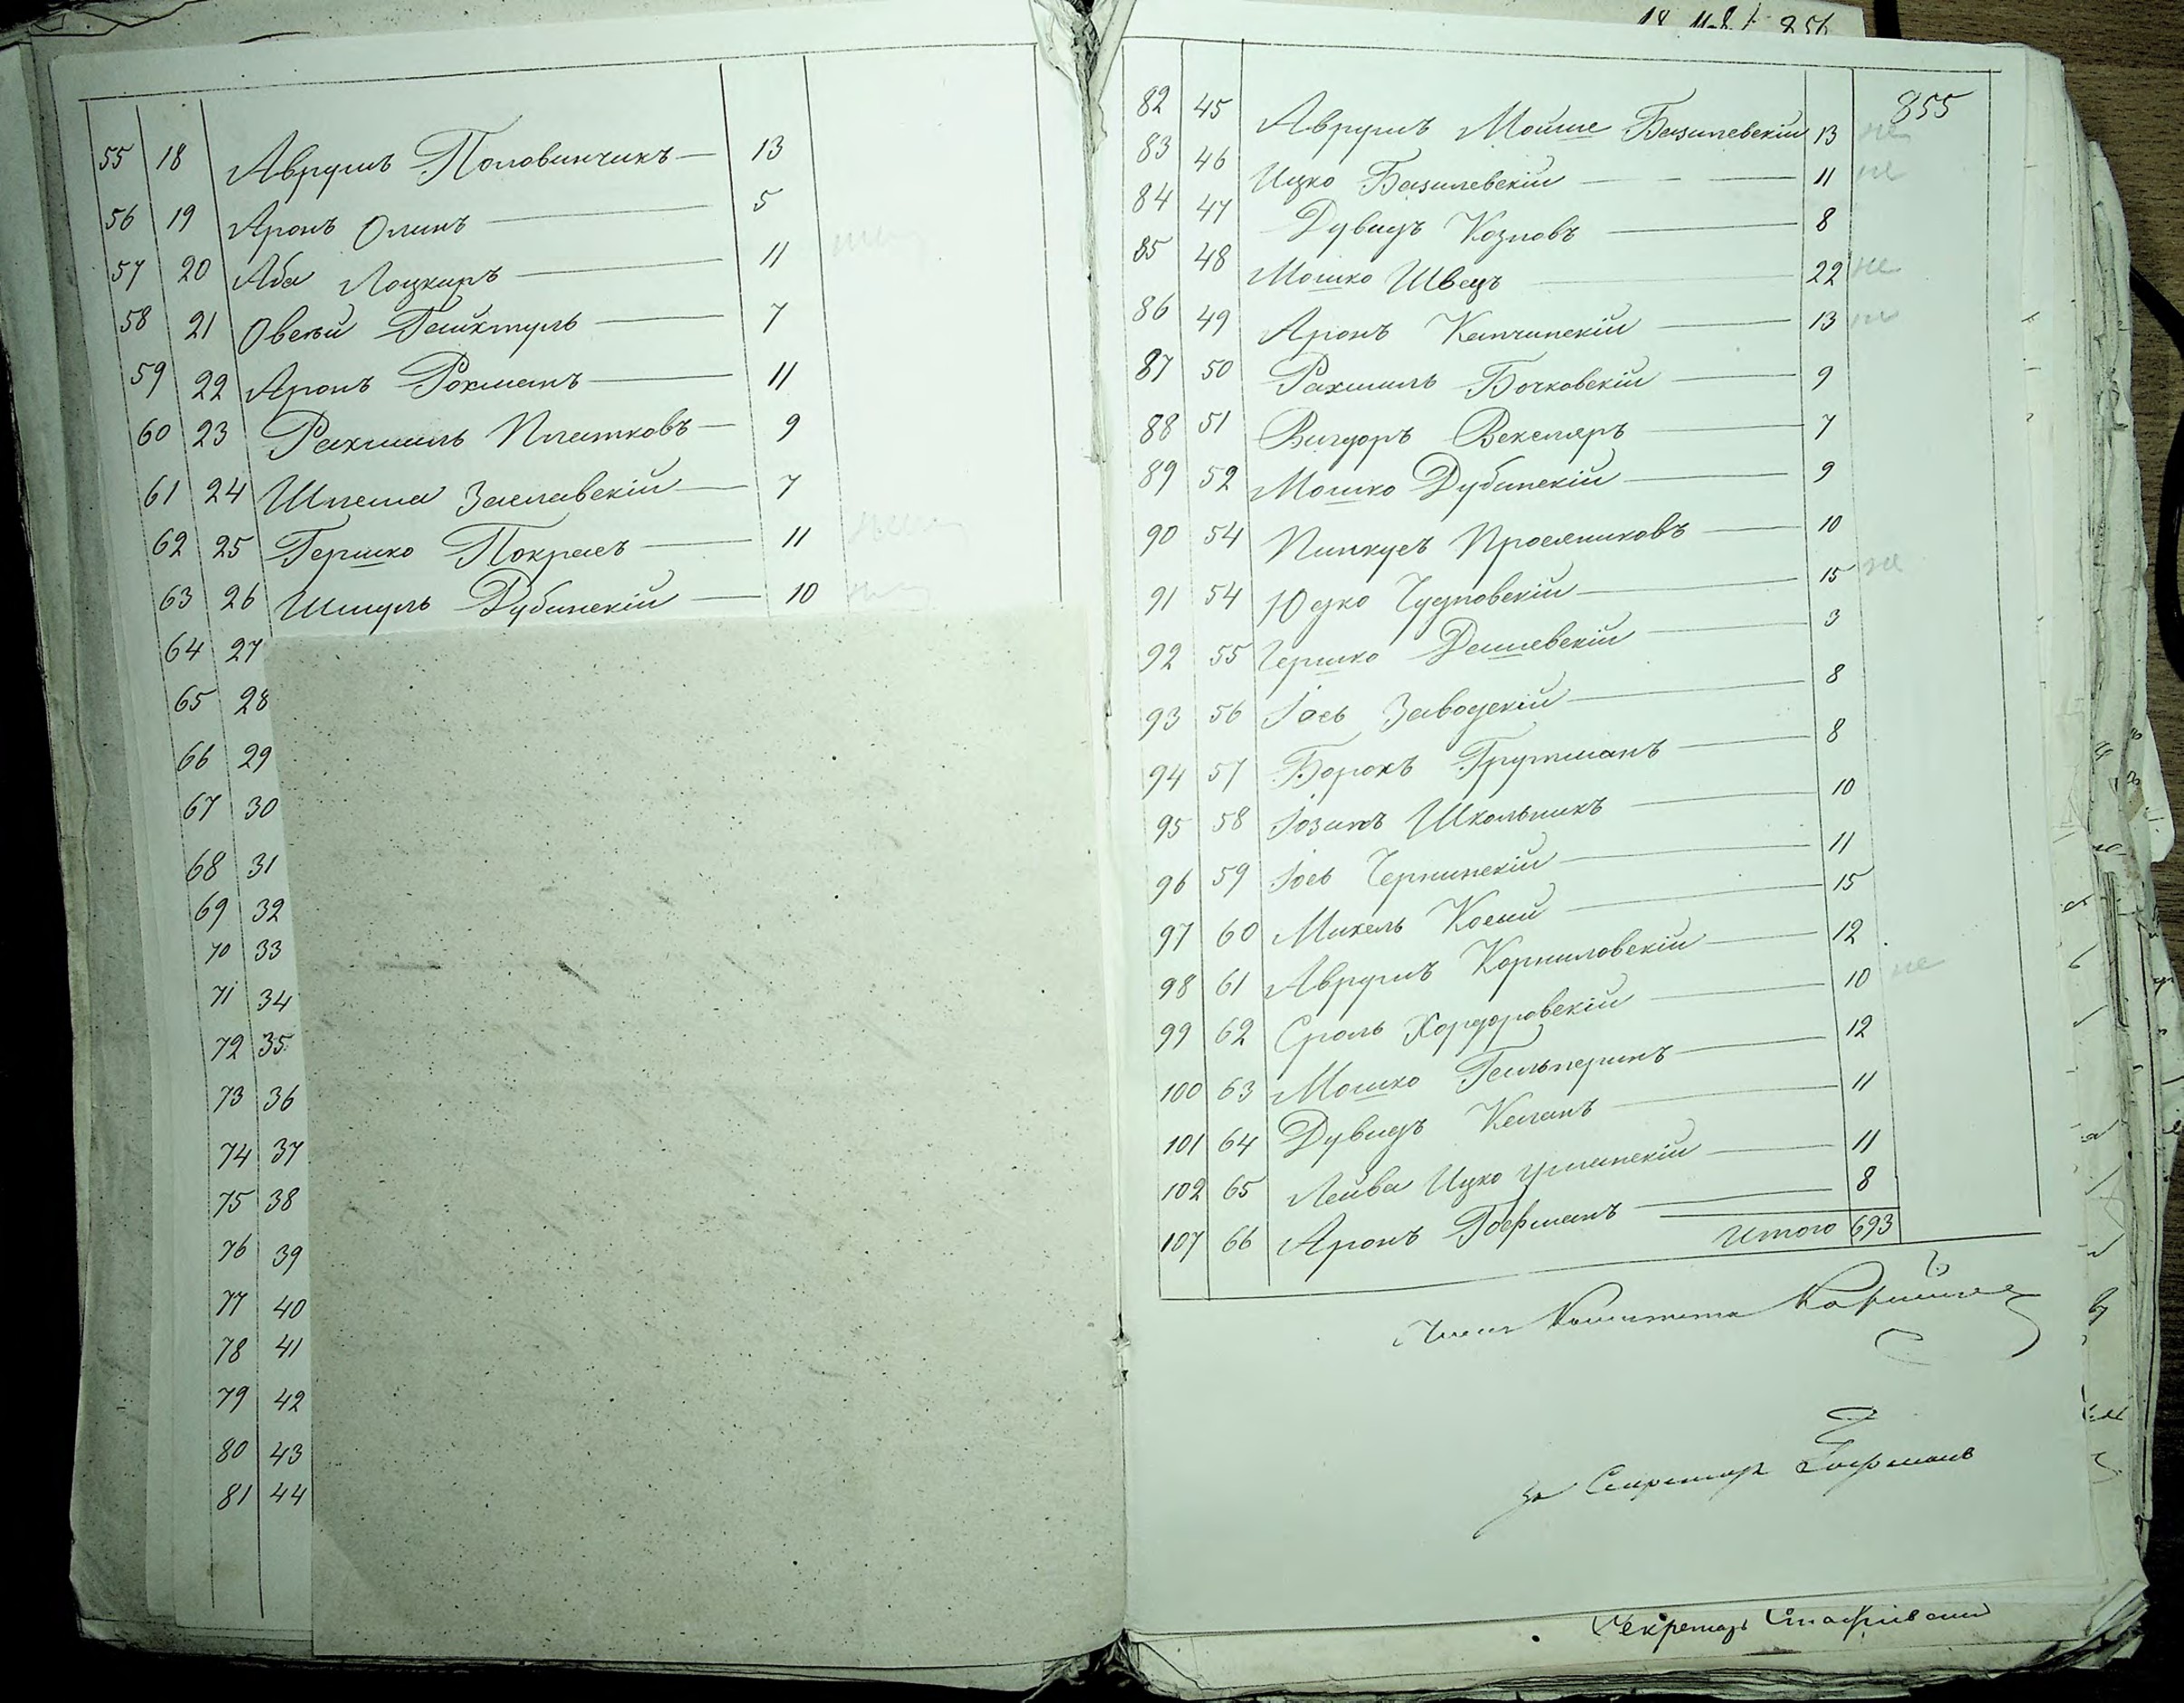 55 18 Аврумъ Половинчикъ — 13
56 19 Аронъ Олинъ — 5
57 20 Аба Лоцкиръ — 11
58 21 Овсѣй — 7
59 22 Аронъ Рохманъ — 11
60 23 Рахмиль Платковъ — 9
61 24 Шлема Заславскій — 7
62 25 Гершко Покрасъ — 11
63 26 Шмуль Дубинскій — 10
64 27
65 28
66 29
67 30
68 31
69 32
70 33
71 34
72 35
73 36
74 37
75 38
76 39
77 40
78 41
79 42
80 43
81 44
855
82 45 Аврумъ Мошше Базилевскій 13 не
83 46 Ицко Базилевскій — 11 не
84 47 Дувидъ Козловъ — 8
85 48 Мошко Швецъ — 22 не
86 49 Аронъ Капчинскій — 13 не
87 50 Рахмиль Бочковскій — 9
88 51 Вигдоръ Векслеръ — 7
89 52 Мошко Дубинскій — 9
90 54 Пинкусъ Просяниковъ — 10
91 54 Юдко Чудновскій — 15 не
92 55 Гершко Дашевскій — 3
93 56 Іось Заводскій — 8
94 57 Борохъ Грутманъ — 8
95 58 Іозипъ Школьникъ — 10
96 59 Іось Чернинскій — 11
97 60 Михель Косый — 15
98 61 Аврумъ Корниловскій — 12
99 62 Сроль Хордоровскій — 10 не
100 63 Мошко Гальперинъ — 12
101 64 Дувидъ Каганъ — 11
102 65 Лейба Ицко Уманскій — 11
107 66 Аронъ Гофманъ — 8
Итого 693
Членъ Комитета
За Секретаря Гофманъ
Секретарь